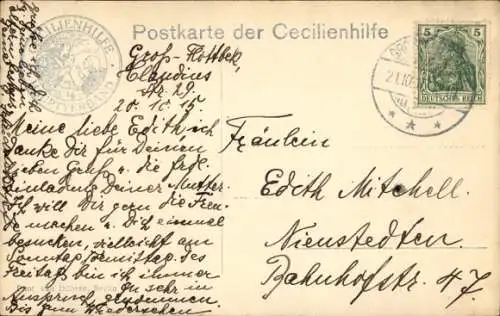 Postkarte der Cecilienhilfe
CECILIENHILFE
Groß-Flottbek,
Claudius
Str. 29.
20. 10. 15
Meine liebe Edith, ich
danke Dir für Deinen
lieben Gruß u. die frdl.
Einladung Deiner Mutter.
Ich will Dir gern die Freu-
de machen u. Dich einmal
besuchen, vielleicht am
Sonntag Vormittag. Des
Freitags bin ich immer
zu sehr in
Anspruch genommen.
Bis zum Wiedersehen
5 5
DEUTSCHES REICH
21.10
Fräulein
Edith Mitchell.
Nienstedten.
Bahnhofstr. 47.